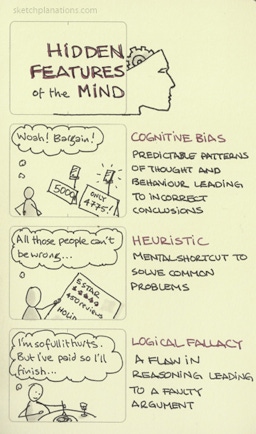 sketchplanations.com
HIDDEN
FEATURES
of the MIND
Woah! Bargain!
5000
ONLY
4775!
COGNITIVE BIAS
PREDICTABLE PATTERNS
OF THOUGHT AND
BEHAVIOUR LEADING
TO INCORRECT
CONCLUSIONS
All those people can't
be wrong...
5 STAR
450 reviews
HEURISTIC
MENTAL SHORTCUT TO
SOLVE COMMON
PROBLEMS
I'm so full it hurts.
But I've paid so I'll
finish...
LOGICAL FALLACY
A FLAW IN
REASONING LEADING
TO A FAULTY
ARGUMENT